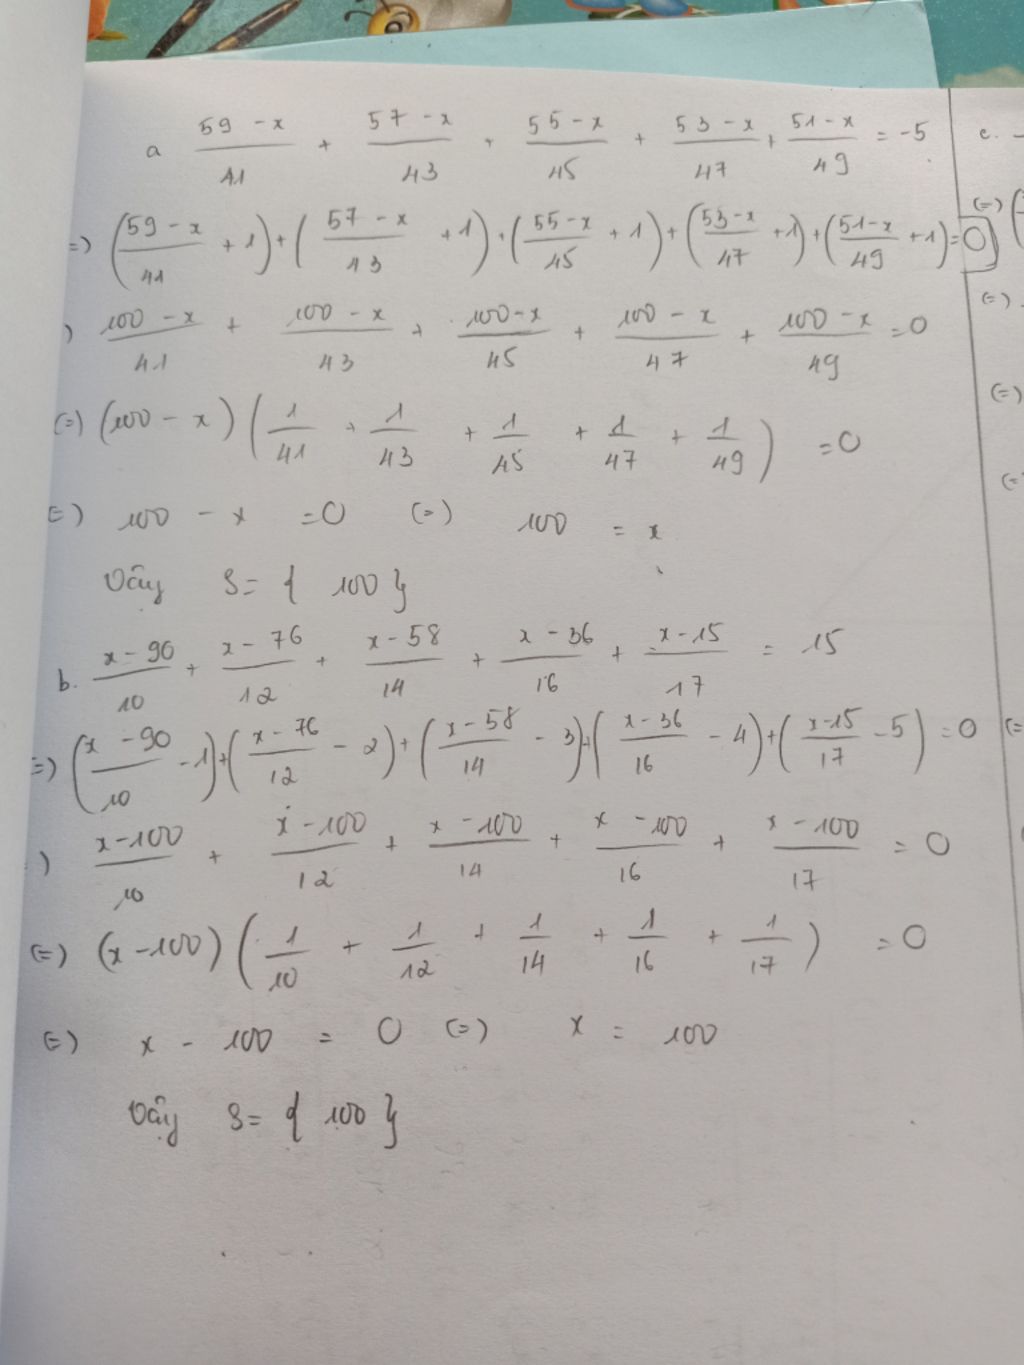 a (59 - x)/41 + (57 - x)/43 + (55 - x)/45 + (53 - x)/47 + (51 - x)/49 = -5
=) ((59 - x)/41 + 1) + ((57 - x)/43 + 1) + ((55 - x)/45 + 1) + ((53 - x)/47 + 1) + ((51 - x)/49 + 1) = 0
) (100 - x)/41 + (100 - x)/43 + (100 - x)/45 + (100 - x)/47 + (100 - x)/49 = 0
(=) (100 - x) (1/41 + 1/43 + 1/45 + 1/47 + 1/49) = 0
=) 100 - x = 0 (=) 100 = x
Vậy S = { 100 }
b. (x - 90)/10 + (x - 76)/12 + (x - 58)/14 + (x - 36)/16 + (x - 15)/17 = 15
=) ((x - 90)/10 - 1) + ((x - 76)/12 - 2) + ((x - 58)/14 - 3) + ((x - 36)/16 - 4) + ((x - 15)/17 - 5) = 0
) (x - 100)/10 + (x - 100)/12 + (x - 100)/14 + (x - 100)/16 + (x - 100)/17 = 0
(=) (x - 100) (1/10 + 1/12 + 1/14 + 1/16 + 1/17) = 0
(=) x - 100 = 0 (=) x = 100
Vậy S = { 100 }
c. -
(=) (
(=)
(=)
(=
(=